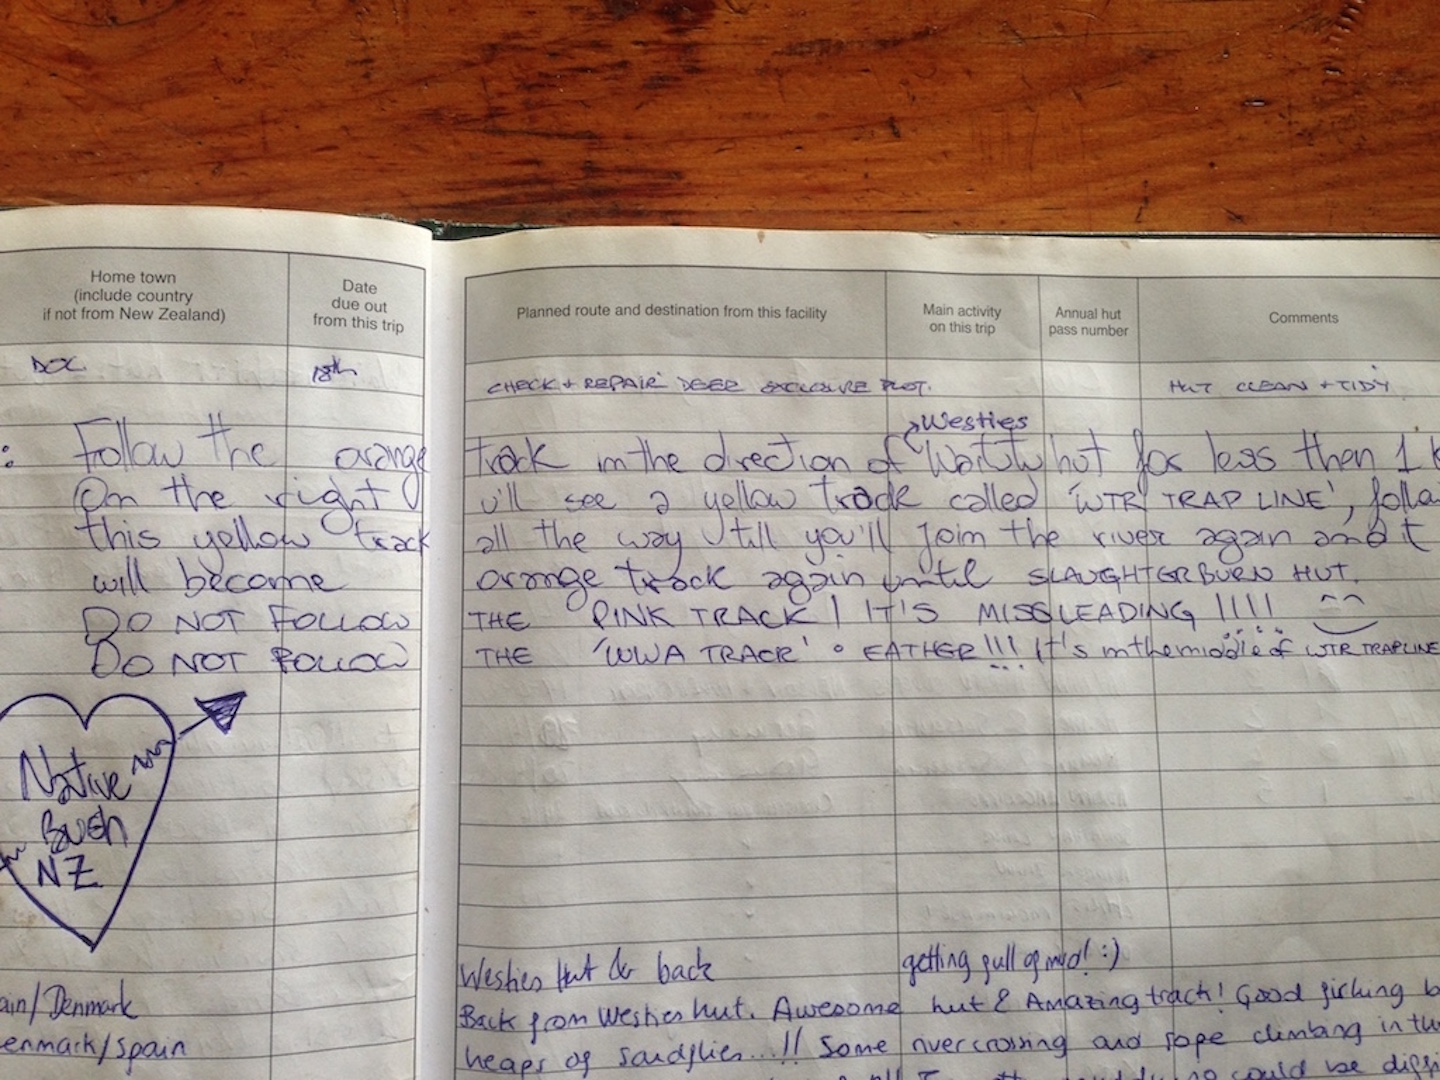 Home town
(include country
if not from New Zealand)
Date
due out
from this trip
Planned route and destination from this facility
Main activity
on this trip
Annual hut
pass number
Comments
DOC 18th CHECK + REPAIR DEER EXCLOSURE PLOT. HUT CLEAN + TIDY
Westies
: Follow the orange track in the direction of Waitutu hut for less then 1 k
On the right u'll see a yellow track called 'WTR TRAP LINE', follow
this yellow track all the way till you'll join the river again and it
will become orange track again until SLAUGHTERBURN HUT.
DO NOT FOLLOW THE PINK TRACK! IT'S MISSLEADING !!!!
DO NOT FOLLOW THE 'WWA TRACK' EATHER!!! It's in the middle of WTR TRAPLINE
Native
Bush
NZ
Westies Hut & back getting full of mud! :)
ain/Denmark Back from Westies hut. Awesome hut & Amazing track! Good fishing b
enmark/Spain heaps of sandflies...!! Some rivercrossing and rope climbing in th
could be diffi